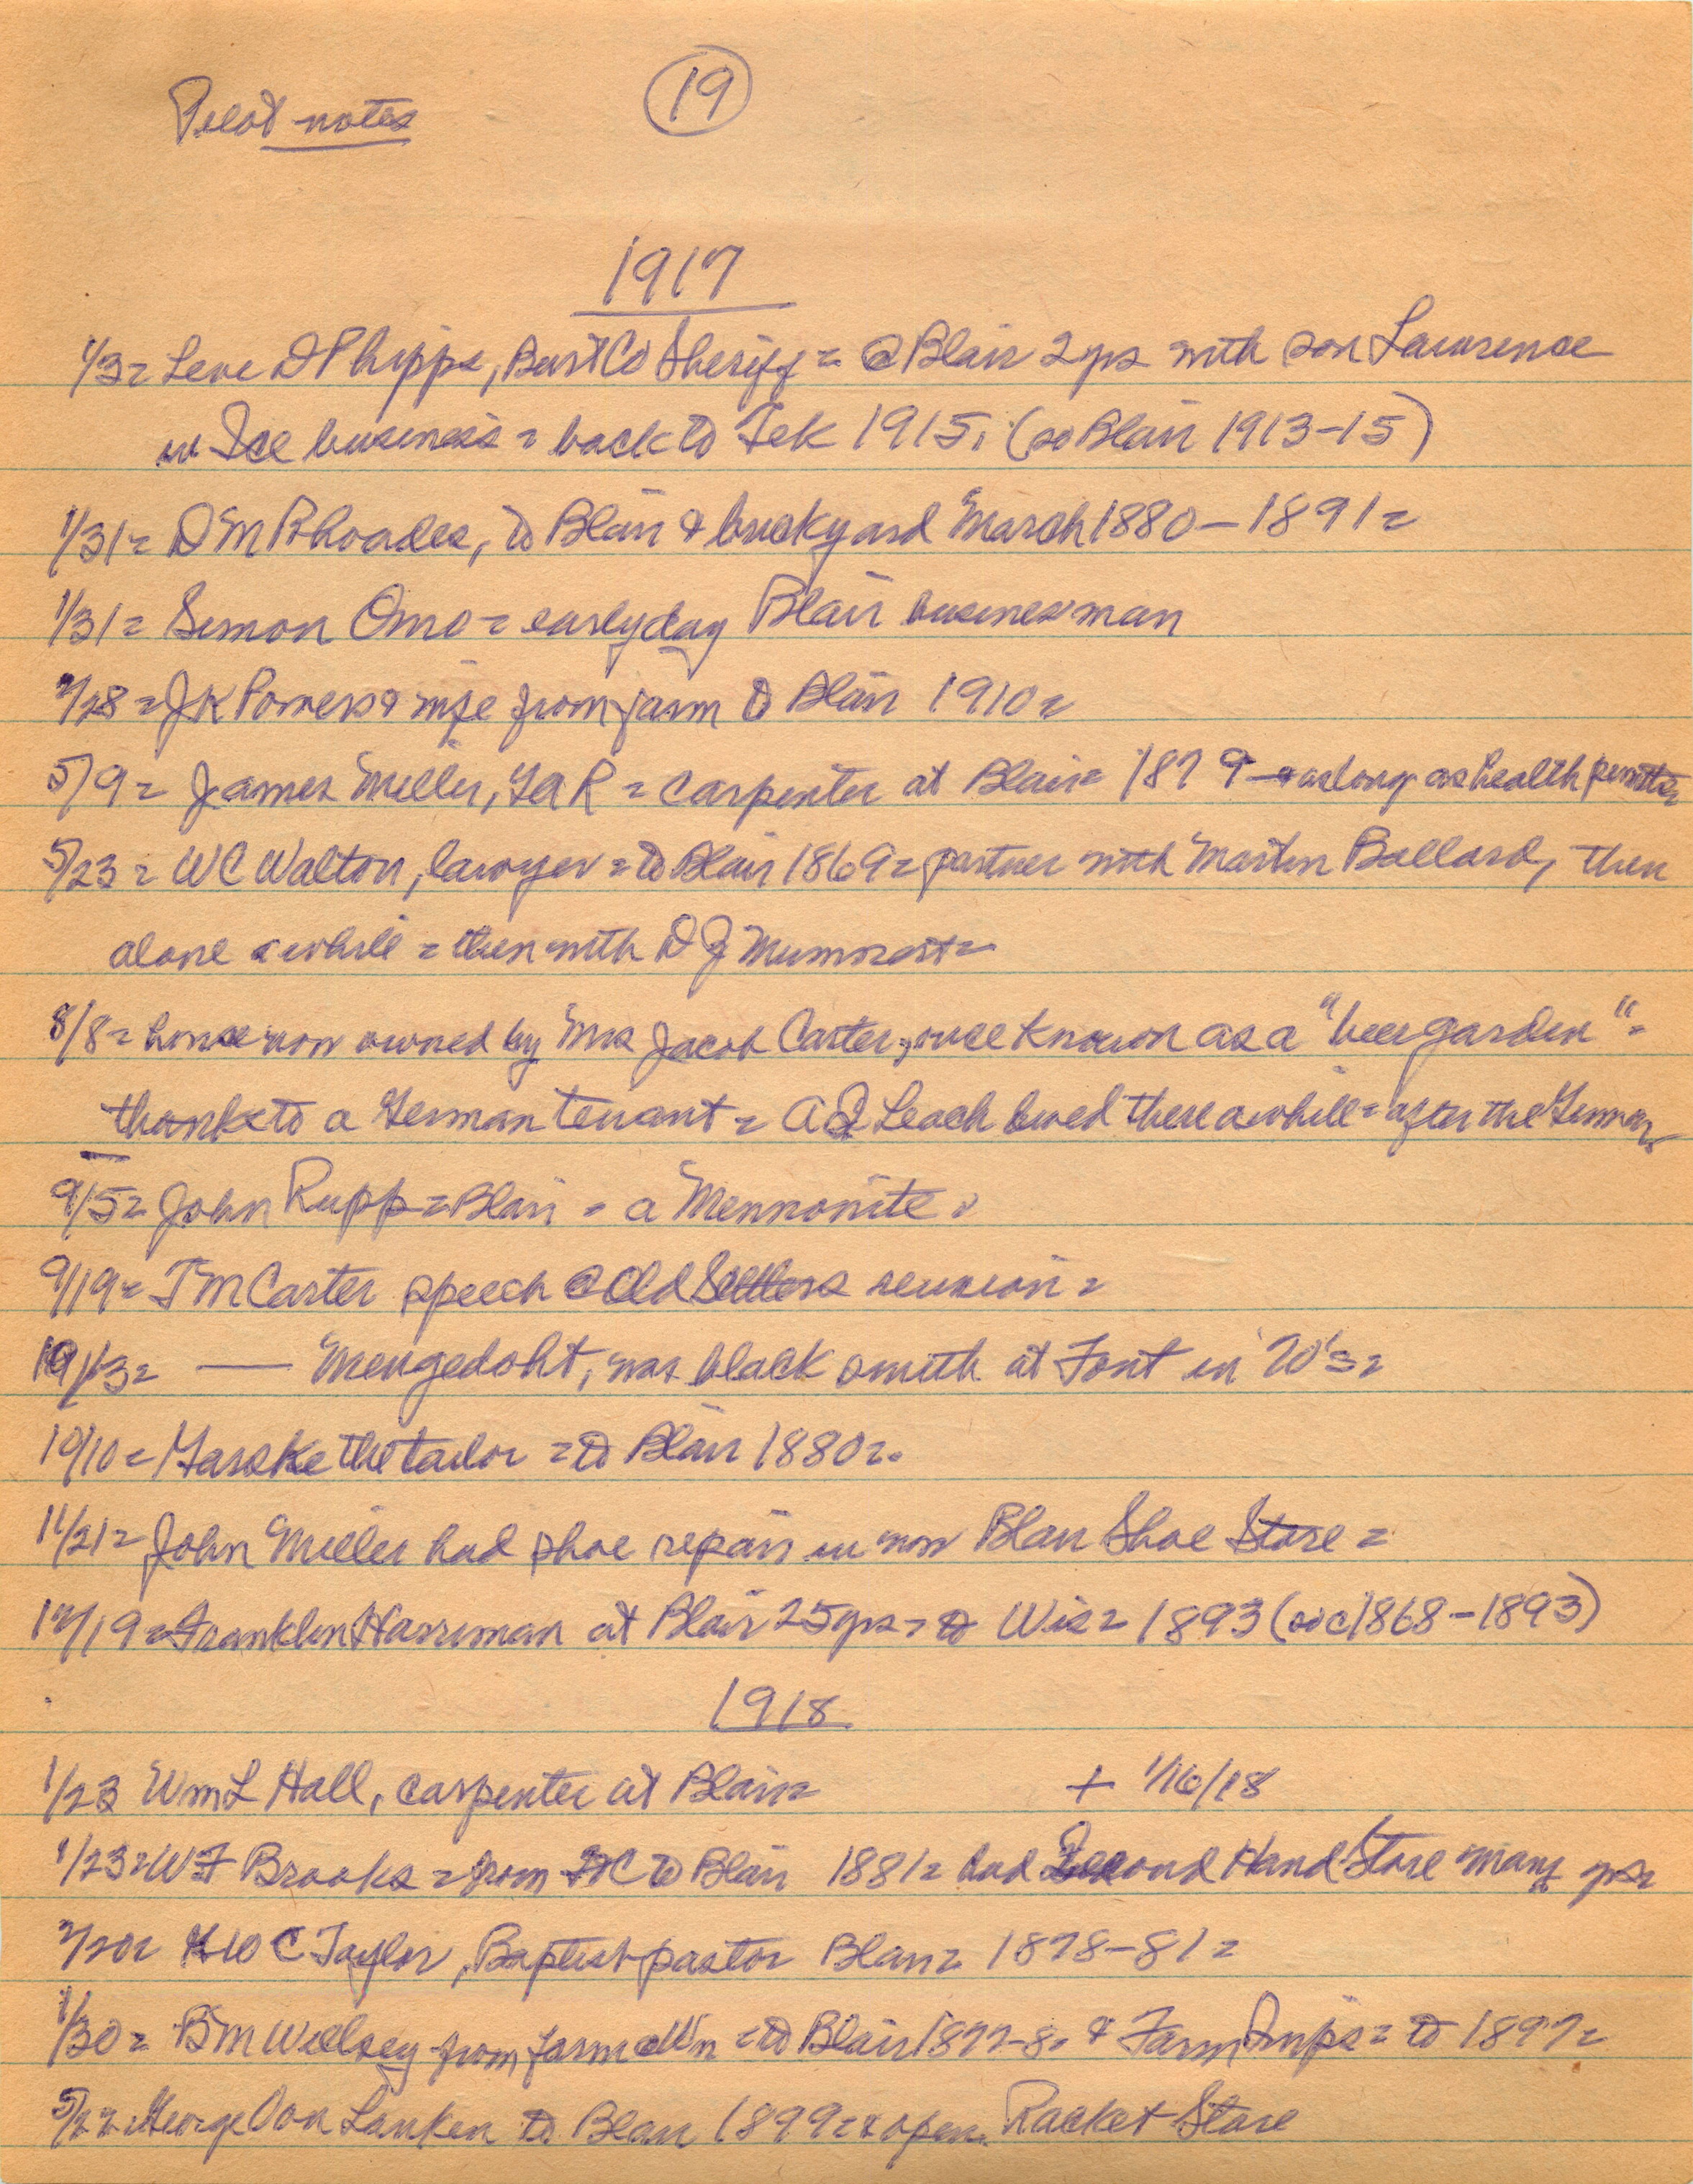 Pilot notes
19
1917
1/3 = Leve D Phipps, Burt Co Sheriff = @ Blair 2 yrs with son Lawrence
in Ice business = back to Tek 1915, (so Blair 1913-15)
1/31 = D M Rhoades, to Blair & brickyard March 1880-1891 =
1/31 = Simon Omo = early day Blair businessman
2/28 = J K Powers & wife from farm to Blair 1910 =
5/9 = James Miller, GAR = carpenter at Blair = 1879 - as long as health permitted =
5/23 = W C Walton, lawyer = to Blair 1869 = partner with Martin Ballard, then
alone awhile = then with D Z Mummert =
8/8 = house now owned by Mrs Jacob Carter, once known as a "beer garden" =
thanks to a German tenant = A Leach lived there awhile = after the German
9/5 = John Rupp = Blair = a Mennonite =
9/19 = T M Carter speech @ Old Settlers reunion =
10/3 = — Mengedoht, was blacksmith at Font in 70's =
10/10 = Garske the tailor = to Blair 1880 =
11/21 = John Miller had shoe repair in now Blair Shoe Store =
12/19 = Franklin Harriman at Blair 25 yrs = to Wis = 1893 (sic 1868-1893)
1918
1/23 Wm L Hall, carpenter at Blair = + 1/16/18
1/23 = W F Brooks = from to Blair 1881 = had Second Hand Store many yrs =
2/20 = W C Taylor, Baptist pastor Blair = 1878-81 =
1/30 = B M Willsey from farm = to Blair 1877-8 = & Farm Imps = to 1897 =
5/22 = George Von Lanken to Blair 1899 = & open Racket Store